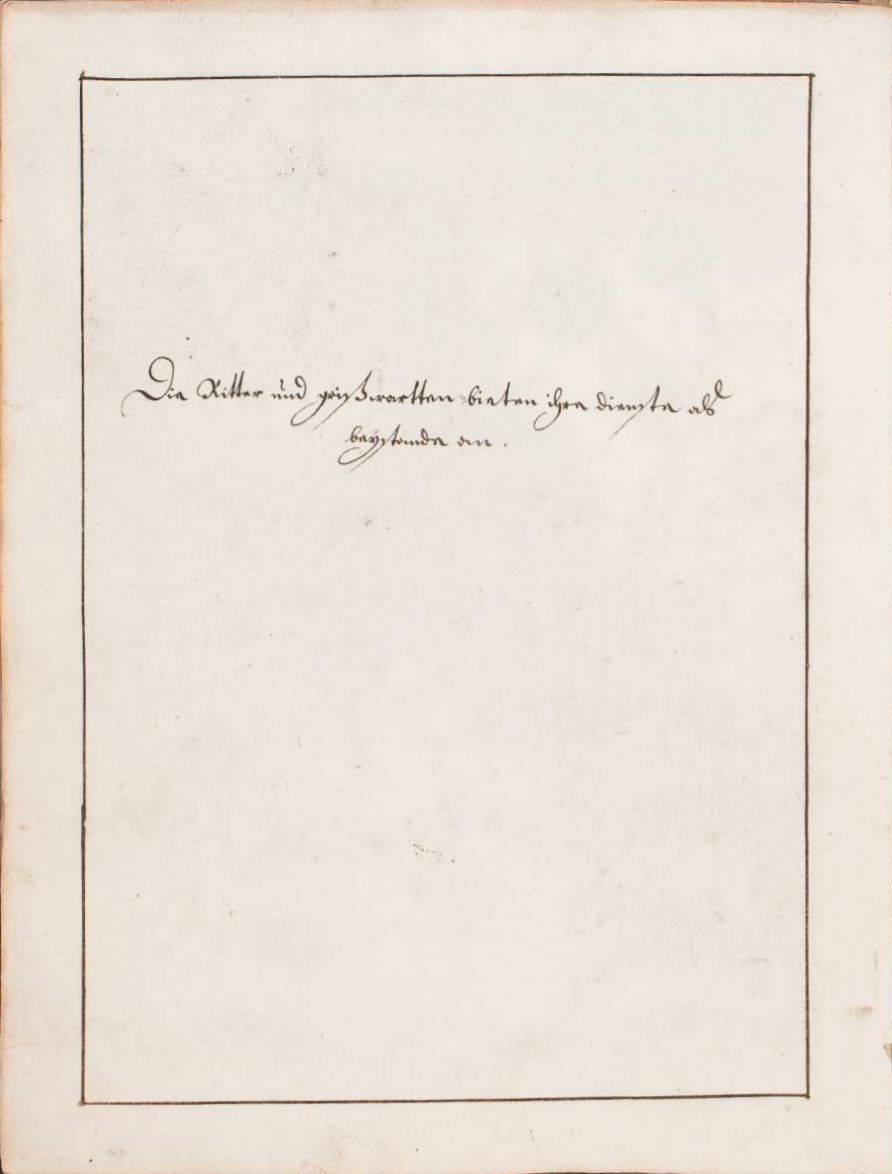 Die Ritter und grißwartten bieten ihre dienste als
beystende an.